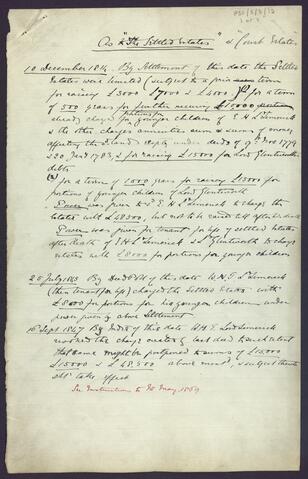 As to "The Settled Estates" & Court Estates
10 December 1814. By Settlement of this date the Settled
Estates were limited (subject to a term
for raising £3000 £7000 & £500) for a term
of 500 years for further securing £10000
already charged for portions for younger children of E H Ld Limerick
& the other charges annuities sum & sums of money
affecting the lands under deeds of 9th Nov 1779
& 20 Jan 1783, & for raising £15000 for Lord Glentworth's
debts
(2) for a term of 1000 years for raising £15000 for
portions of younger children of Lord Glentworth
Power was given to E H Ld Limerick to charge the
Estates with £48500, but not to be raised till after his death
Power was given for tenant for life of settled Estates
after death of E H Ld Limerick & Ld Glentworth to charge
estates with £8000 for portions for younger children
20 July 1843 By Deed Poll of this date Ld Limerick
(then tenant for life) charged the Settled Estates with
£8000 for portions for his younger children under
power given by above Settlement
16 Sept 1847 By Indre of this date W H E Lord Limerick
revoked the charge created by last deed to such extent
that same might be postponed to sums of £15000
£15000 & £48,500 above mentd, & subject thereto
shd take effect
See Instructions to 30 May 1859